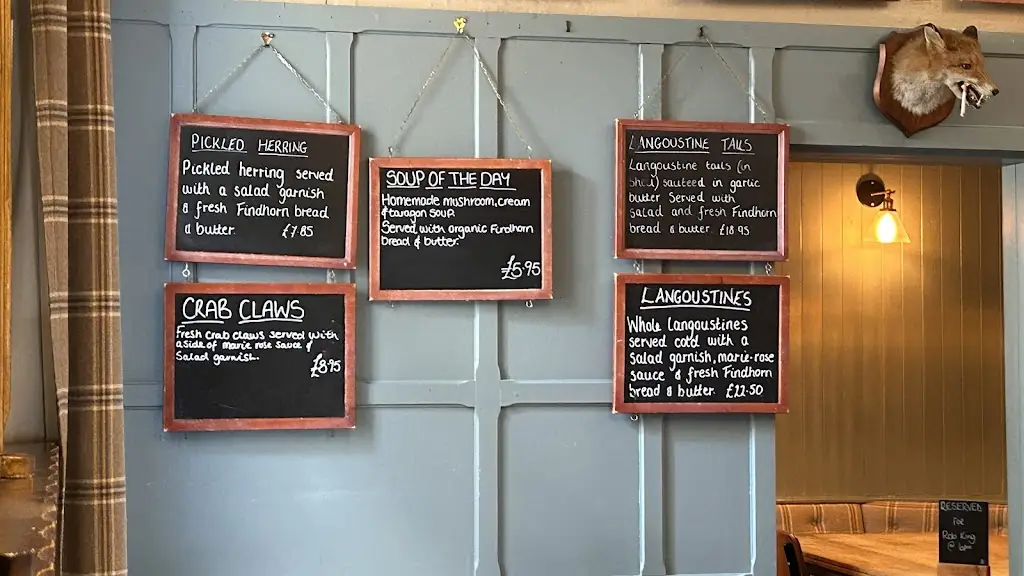 PICKLED HERRING
Pickled herring served
with a salad garnish
& fresh Findhorn bread
& butter. £7.85
CRAB CLAWS
Fresh crab claws served with
a side of marie rose sauce &
Salad garnish.
£8.95
SOUP OF THE DAY
Homemade mushroom, cream
& taragon soup.
Served with organic Findhorn
bread & butter.
£5.95
LANGOUSTINE TAILS
Langoustine tails (in
shell) sauteed in garlic
butter Served with
salad and fresh Findhorn
bread & butter £18.95
LANGOUSTINES
Whole Langoustines
served cold with a
salad garnish, marie-rose
sauce & fresh Findhorn
bread & butter. £22.50
RESERVED
FOR
Rob King
@ 6pm